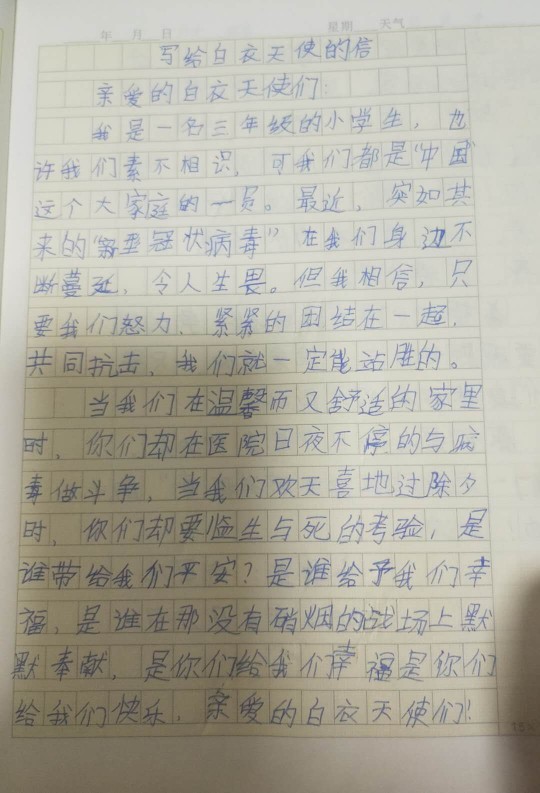 年 月 日 星期 天气
写给白衣天使的信
亲爱的白衣天使们
我是一名三年级的小学生，也
许我们素不相识，可我们都是“中国”
这个大家庭的一员。最近，突如其
来的“新型冠状病毒”在我们身边不
断蔓延，令人生畏。但我相信，只
要我们怒力、紧紧的团结在一起，
共同抗击，我们就一定能站胜的。
当我们在温馨而又舒适的家里
时，你们却在医院日夜不停的与病
毒做斗争，当我们欢天喜地过除夕
时，你们却要临生与死的考验，是
谁带给我们平安？是谁给予我们幸
福，是谁在那没有硝烟的战场上默
默奉献，是你们给我们幸福是你们
给我们快乐，亲爱的白衣天使们！